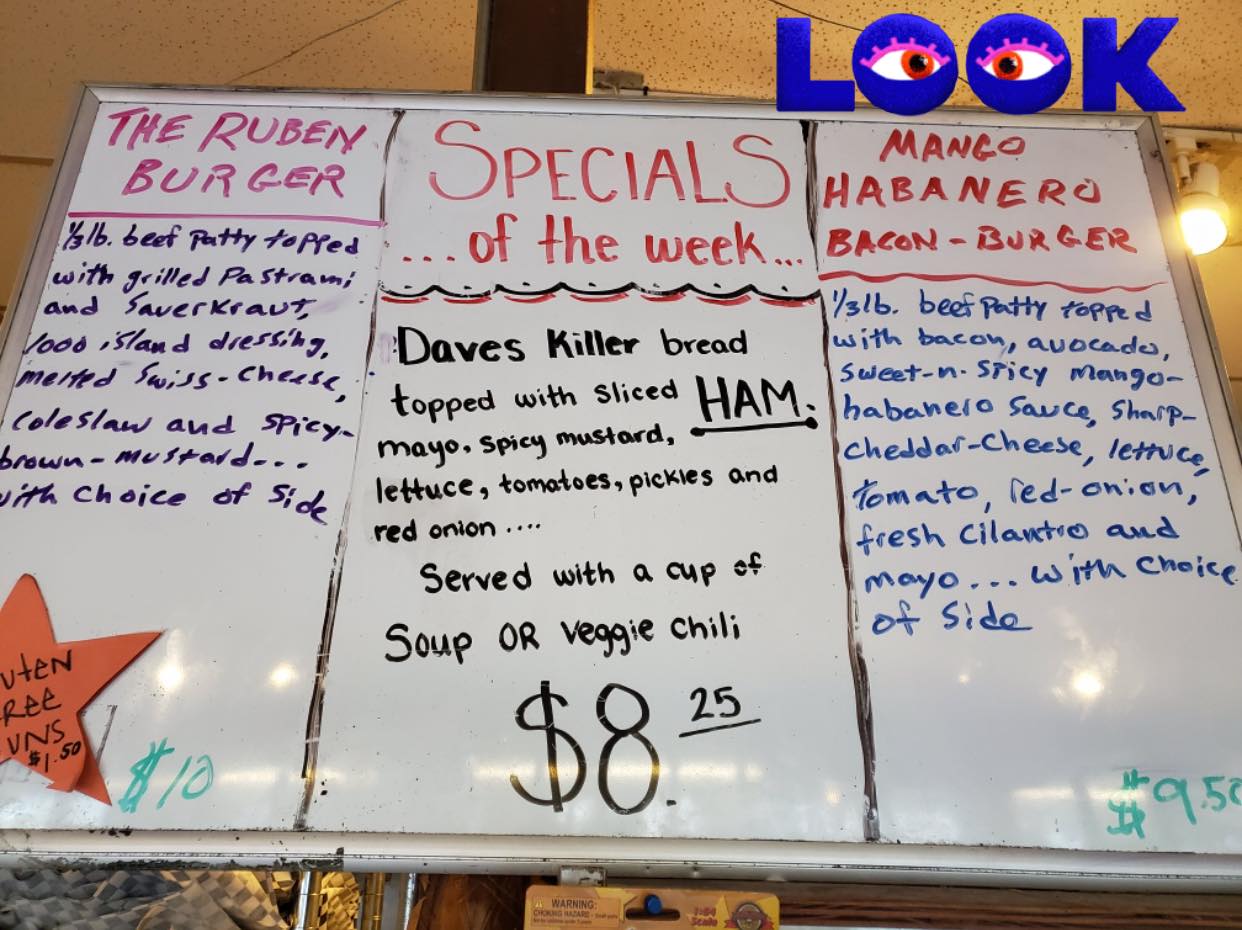 LOOK
THE RUBEN
BURGER
1/3lb. beef patty topped
with grilled Pastrami
and Sauerkraut,
1000 island dressing,
melted Swiss-Cheese,
coleslaw and spicy-
brown-mustard...
with choice of side
$10
SPECIALS
...of the week...
Daves Killer bread
topped with sliced HAM.
mayo. spicy mustard,
lettuce, tomatoes, pickles and
red onion ....
Served with a cup of
Soup OR veggie chili
$8.25
MANGO
HABANERO
BACON-BURGER
1/3lb. beef patty topped
with bacon, avocado,
sweet-n-spicy mango-
habanero sauce, sharp-
cheddar-cheese, lettuce,
tomato, red-onion,
fresh cilantro and
mayo... with choice
of side
$9.50
UTEN
REE
UNS
$1.50
WARNING:
CHOKING HAZARD - Small parts